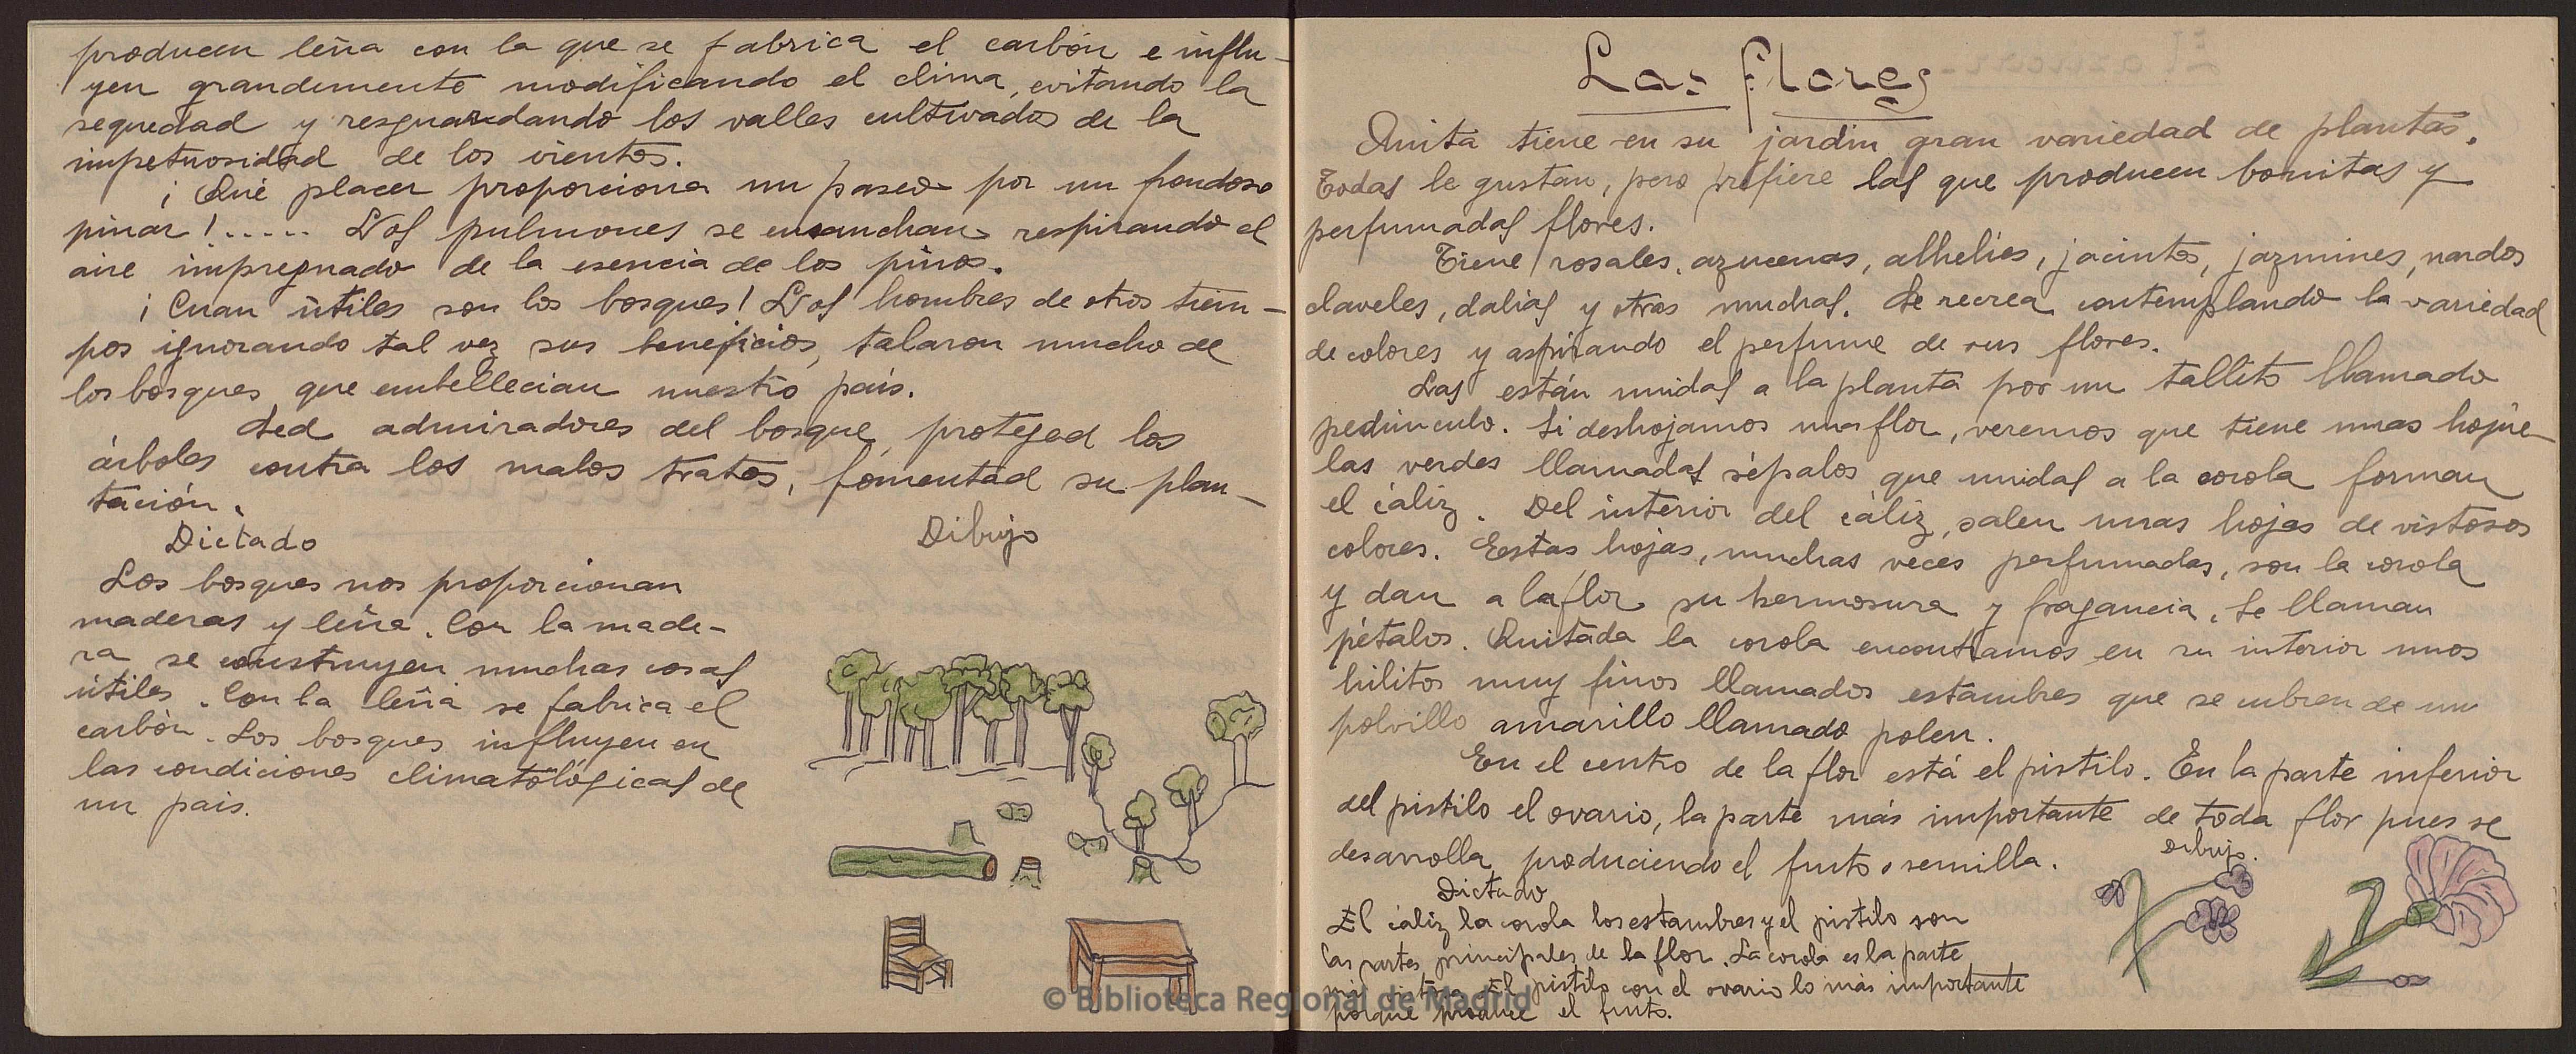 producen leña con la que se fabrica el carbón e influ-
yen grandemente modificando el clima, evitando la
sequedad y resguardando los valles cultivados de la
impetuosidad de los vientos.
¡Qué placer proporciona un paseo por un frondoso
pinar!..... Los pulmones se ensanchan respirando el
aire impregnado de la esencia de los pinos.
¡Cuan útiles son los bosques! Los hombres de otros tiem-
pos ignorando tal vez sus beneficios, talaron mucho de
los bosques que embellecian nuestro país.
Sed admiradores del bosque, proteged los
árboles contra los malos tratos, fomentad su plan-
tación.
Dictado
Los bosques nos proporcionan
maderas y leña. Con la made-
ra se construyen muchas cosas
útiles. Con la leña se fabrica el
carbón. Los bosques influyen en
las condiciones climatológicas de
un pais.
Dibujo
Las flores
Anita tiene en su jardin gran variedad de plantas.
Todas le gustan, pero prefiere las que producen bonitas y
perfumadas flores.
Tiene rosales, azucenas, alhelies, jacintos, jazmines, nardos
claveles, dalias y otras muchas. Se recrea contemplando la variedad
de colores y aspirando el perfume de sus flores.
Las están unidas a la planta por un tallito llamado
pedúnculo. Si deshojamos una flor, veremos que tiene unas hojue-
las verdes llamadas sépalos que unidas a la corola forman
el cáliz. Del interior del cáliz, salen unas hojas de vistosos
colores. Estas hojas, muchas veces perfumadas, son la corola
y dan a la flor su hermosura y fragancia. Se llaman
pétalos. Quitada la corola encontramos en su interior unos
hilitos muy finos llamados estambres que se cubren de un
polvillo amarillo llamado polen.
En el centro de la flor está el pistilo. En la parte inferior
del pistilo el ovario, la parte más importante de toda flor pues se
desarrolla produciendo el fruto o semilla.
Dibujo.
Dictado
El cáliz la corola los estambres y el pistilo son
las partes principales de la flor. La corola es la parte
más vistosa el pistilo con el ovario lo más importante
porque produce el fruto.
© Biblioteca Regional de Madrid